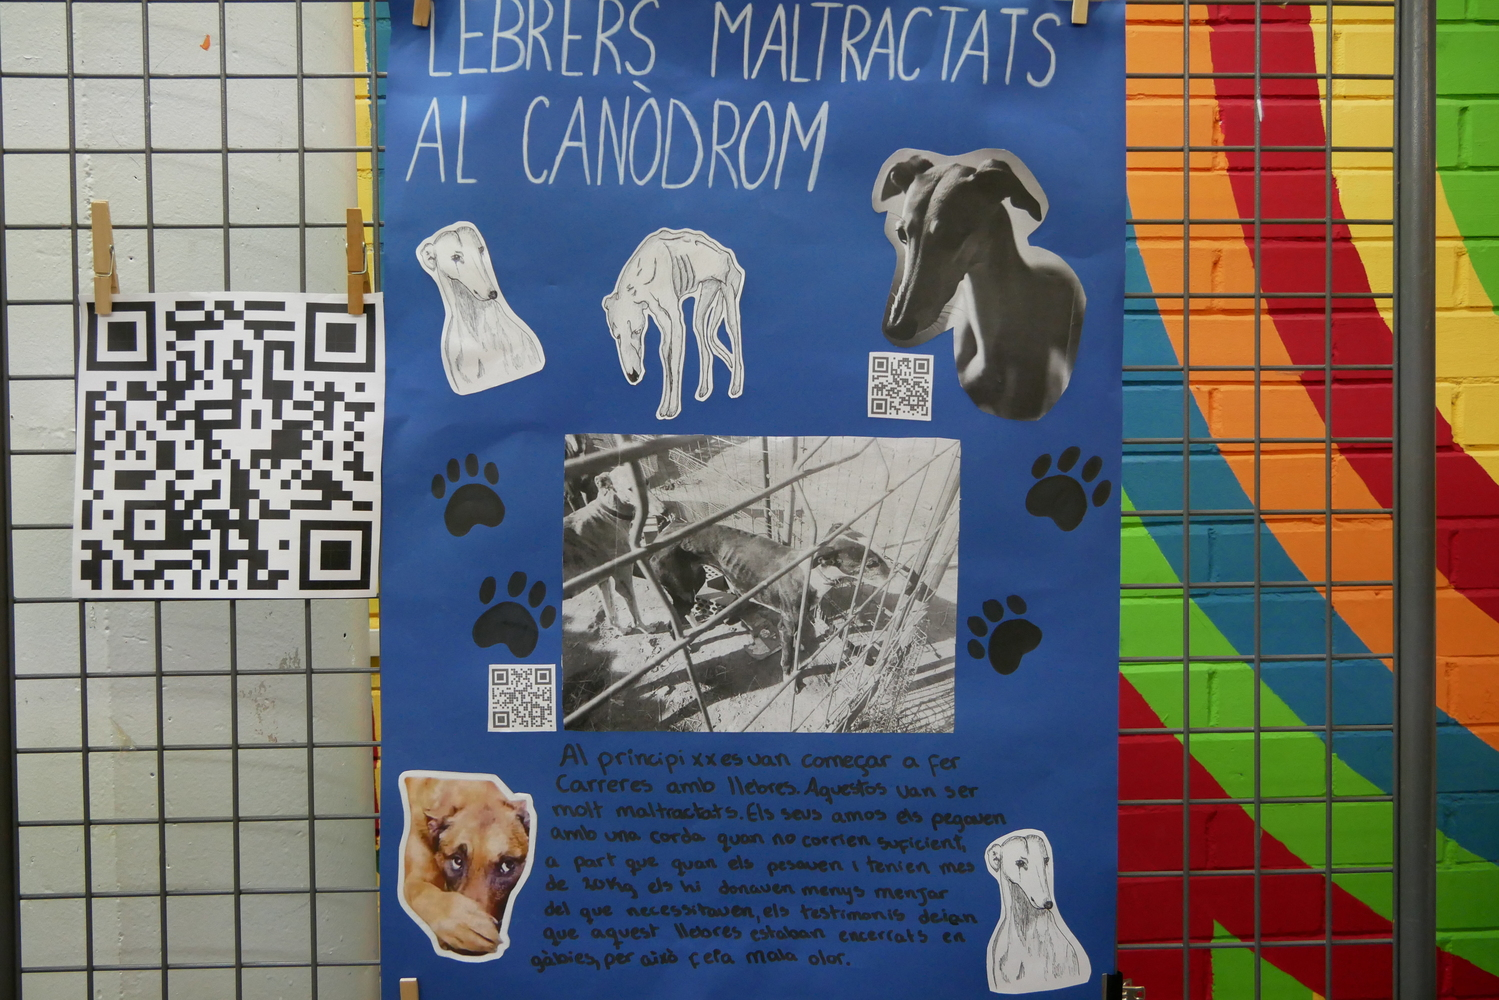 LEBRERS MALTRACTATS
AL CANÒDROM
Al príncipi xx es van començar a fer
Carreres amb llebres. Aquestos van ser
molt maltractats. Els seus amos els pegaven
amb una corda quan no corrien suficient,
a part que quan els pesaven i tenien mes
de 20Kg els hi donaven menys menjar
del que necessitaven, els testimonis deien
que aquest llebres estaban encerrats en
gàbies, per això feia mala olor.